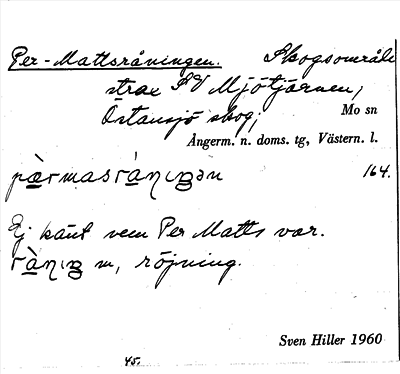 Per-Mattsråningen. Skogsområde
strax SV Mjötjärnen,
Östansjö skog, Mo sn
Ångerm. n. doms. tg, Västern. l.
pæ̀rmasrànıŋən 164.
Ej känt vem Per Matts var.
rànıŋ m, röjning.
Sven Hiller 1960
45.